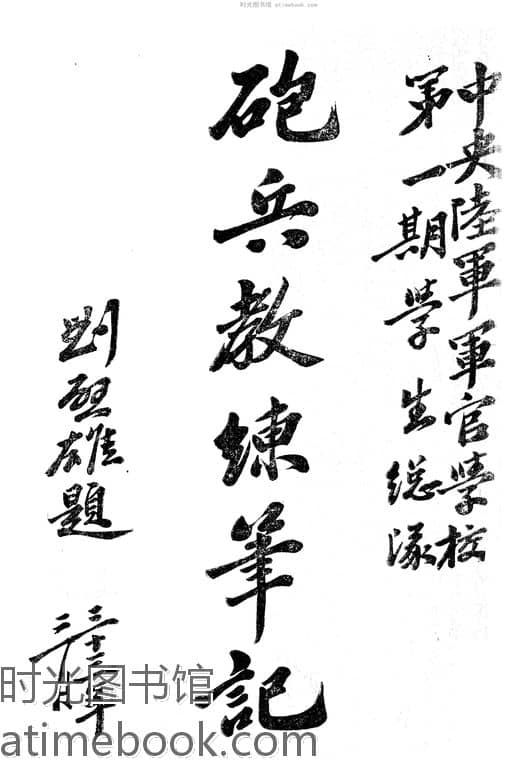 时光图书馆 atimebook.com
中央陸軍軍官學校
第一期學生總隊
砲兵教練筆記
劉啓雄題
时光图书馆
atimebook.com